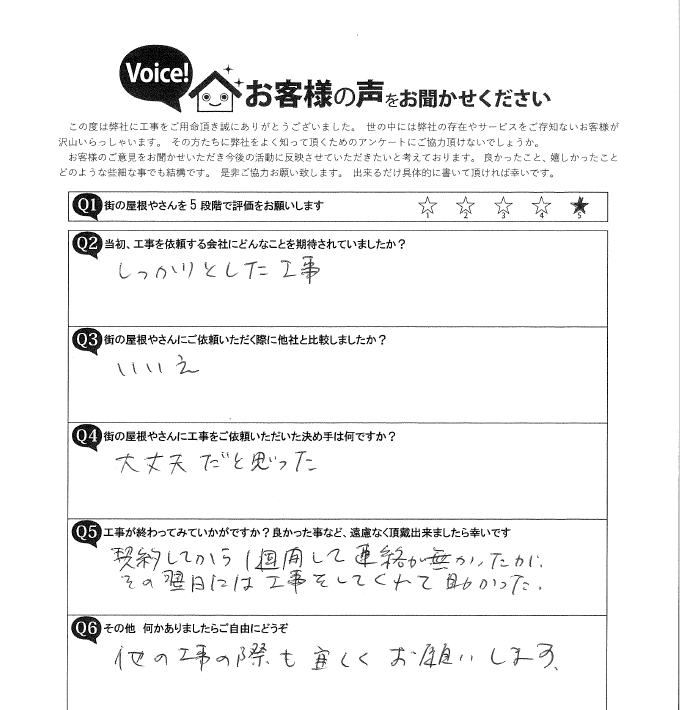 Voice!
お客様の声をお聞かせください
この度は弊社に工事をご用命頂き誠にありがとうございました。 世の中には弊社の存在やサービスをご存知ないお客様が
沢山いらっしゃいます。 その方たちに弊社をよく知って頂くためのアンケートにご協力頂けないでしょうか。
お客様のご意見をお聞かせいただき今後の活動に反映させていただきたいと考えております。 良かったこと、嬉しかったこと
どのような些細な事でも結構です。 是非ご協力お願い致します。 出来るだけ具体的に書いて頂ければ幸いです。
Q1 街の屋根やさんを5段階で評価をお願いします
1 2 3 4 5
Q2 当初、工事を依頼する会社にどんなことを期待されていましたか？
しっかりとした工事
Q3 街の屋根やさんにご依頼いただく際に他社と比較しましたか？
いいえ
Q4 街の屋根やさんに工事をご依頼いただいた決め手は何ですか？
大丈夫だと思った
Q5 工事が終わってみていかがですか？良かった事など、遠慮なく頂戴出来ましたら幸いです
契約してから1週間して連絡が無かったが、
その翌日には工事をしてくれて助かった。
Q6 その他 何かありましたらご自由にどうぞ
他の工事の際も宜しくお願いします。